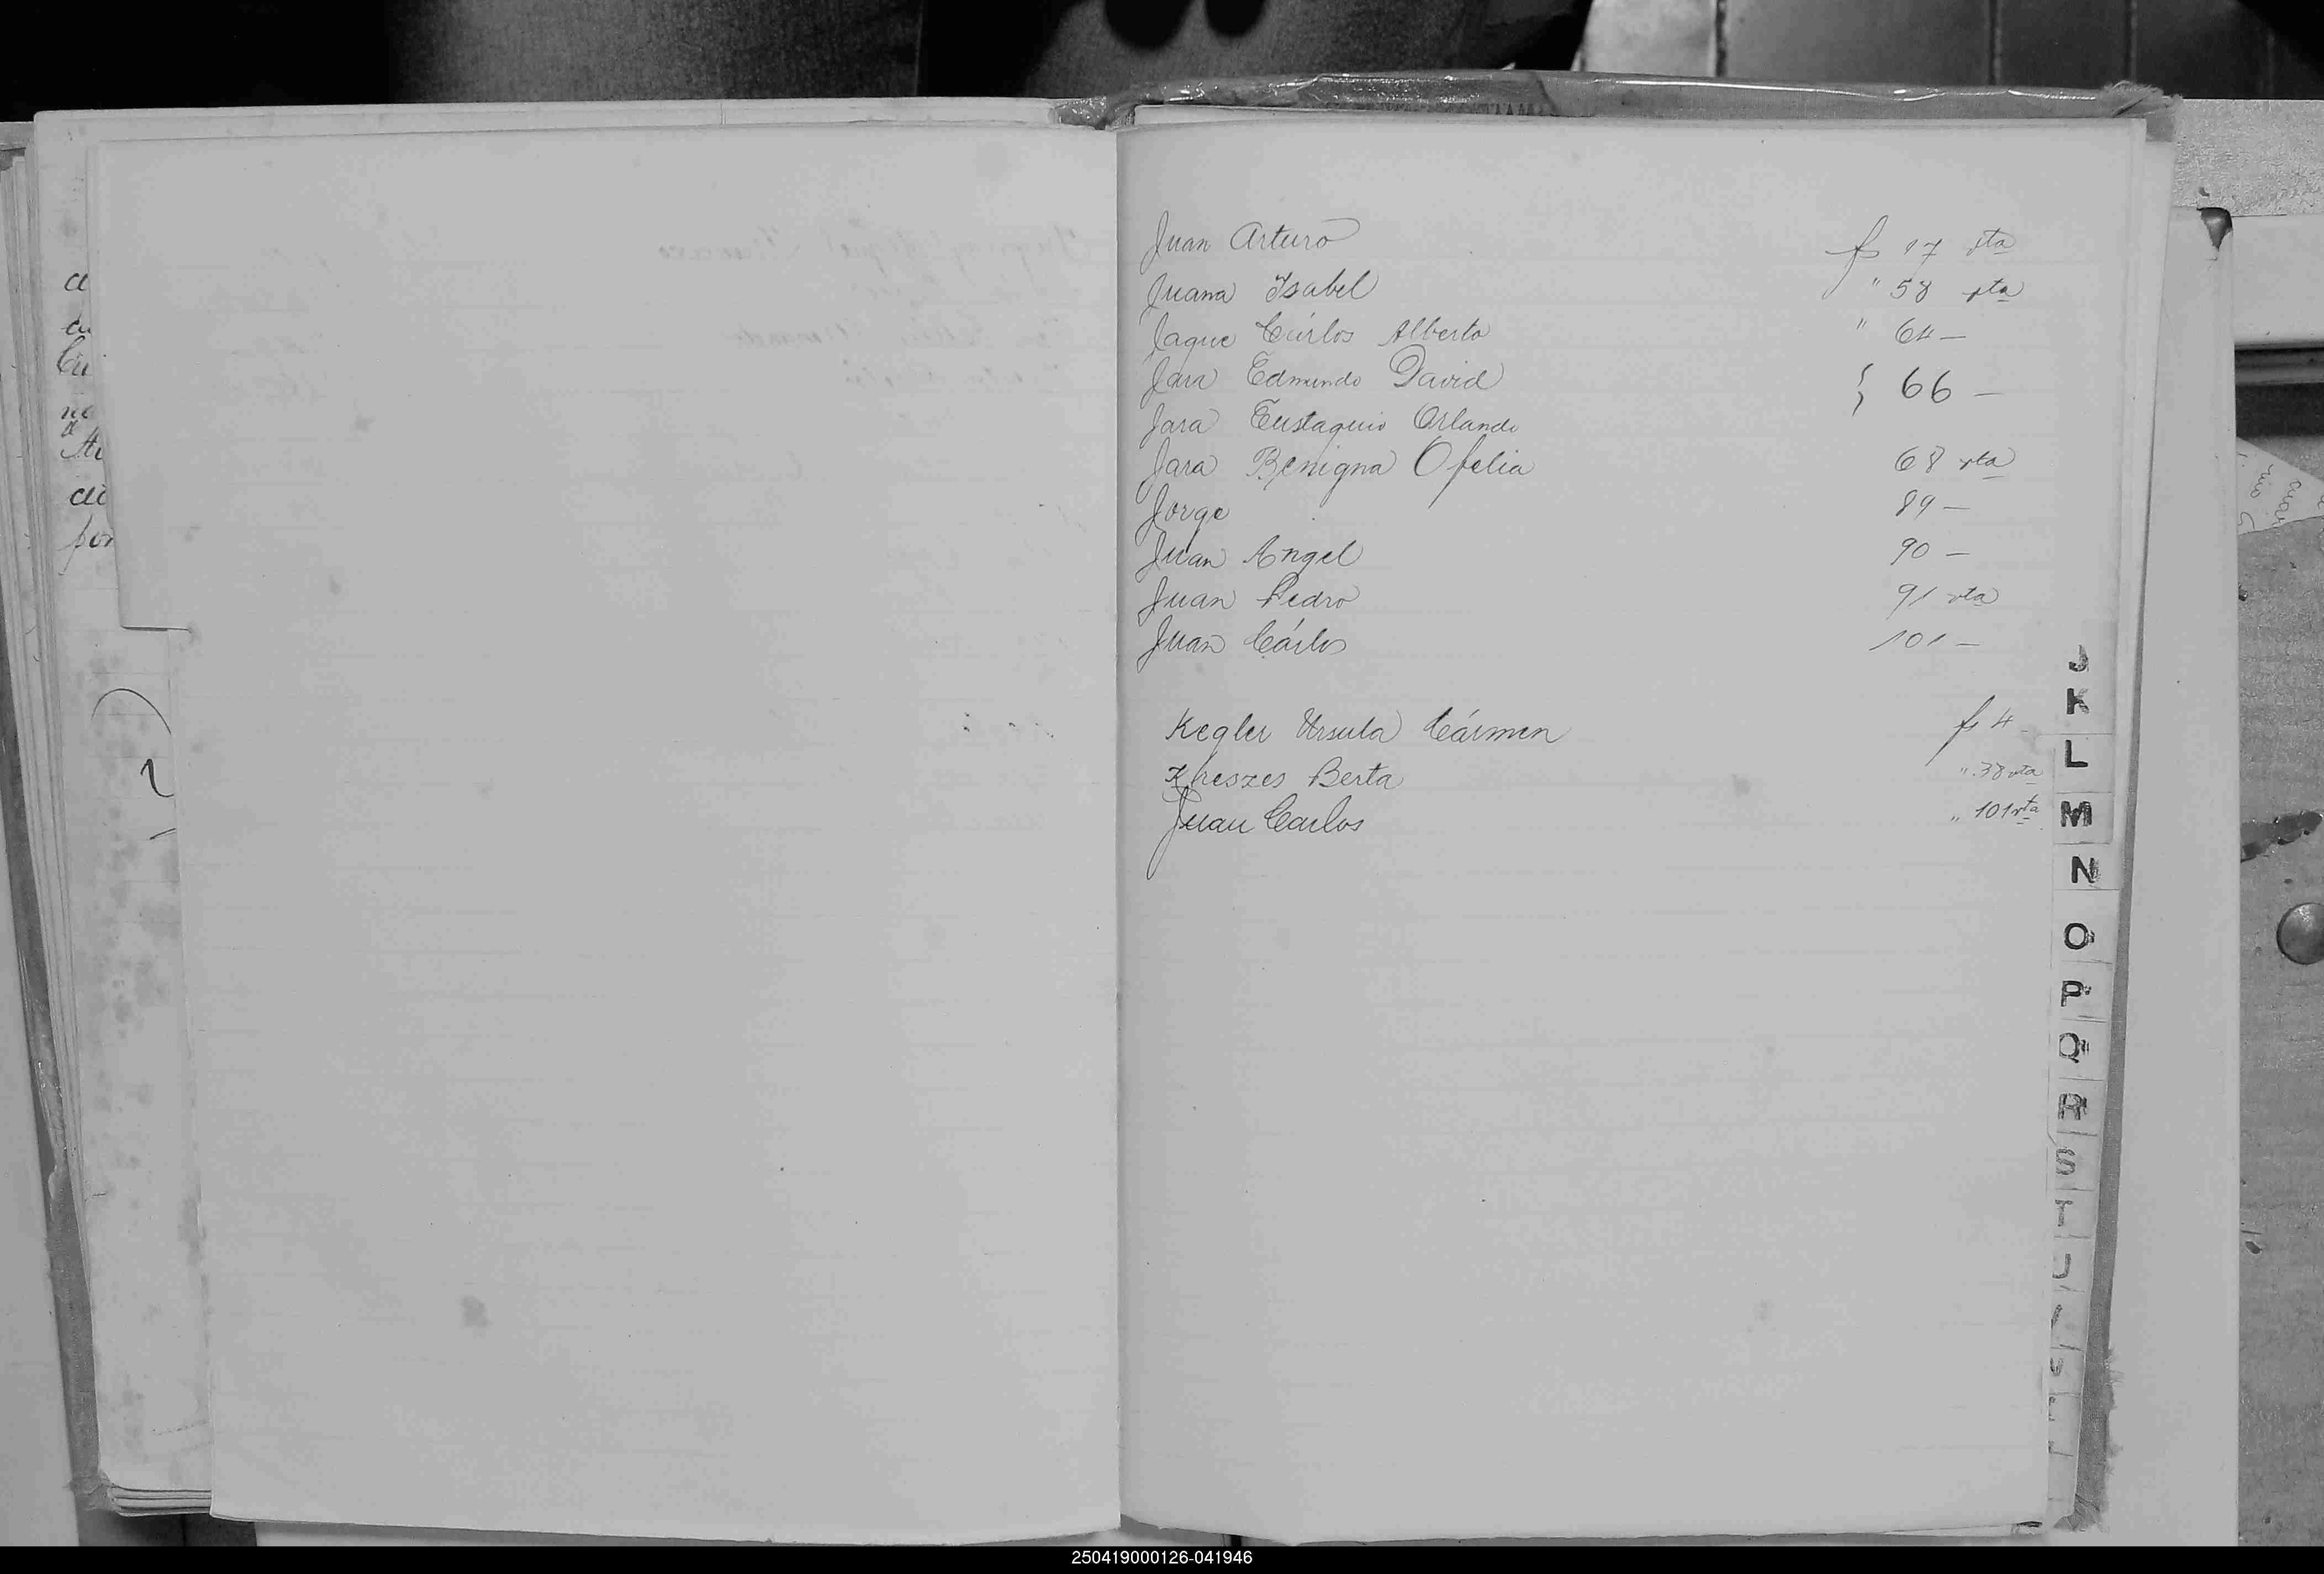 Juan Arturo fs 17 vta
Juana Ysabel " 58 vta
Jaque Cárlos Alberto " 64 —
Jara Edmundo David } 66 —
Jara Eustaquio Orlando
Jara Benigna Ofelia 68 vta
Jorge 89 —
Juan Angel 90 —
Juan Pedro 91 vta
Juan Cárlos 101 —
Kegler Ursula Cármen fs 4 -
Kheszes Berta " 38 vta
Juan Carlos " 101 vta
J
K
L
M
N
O
P
Q
R
S
250419000126-041946